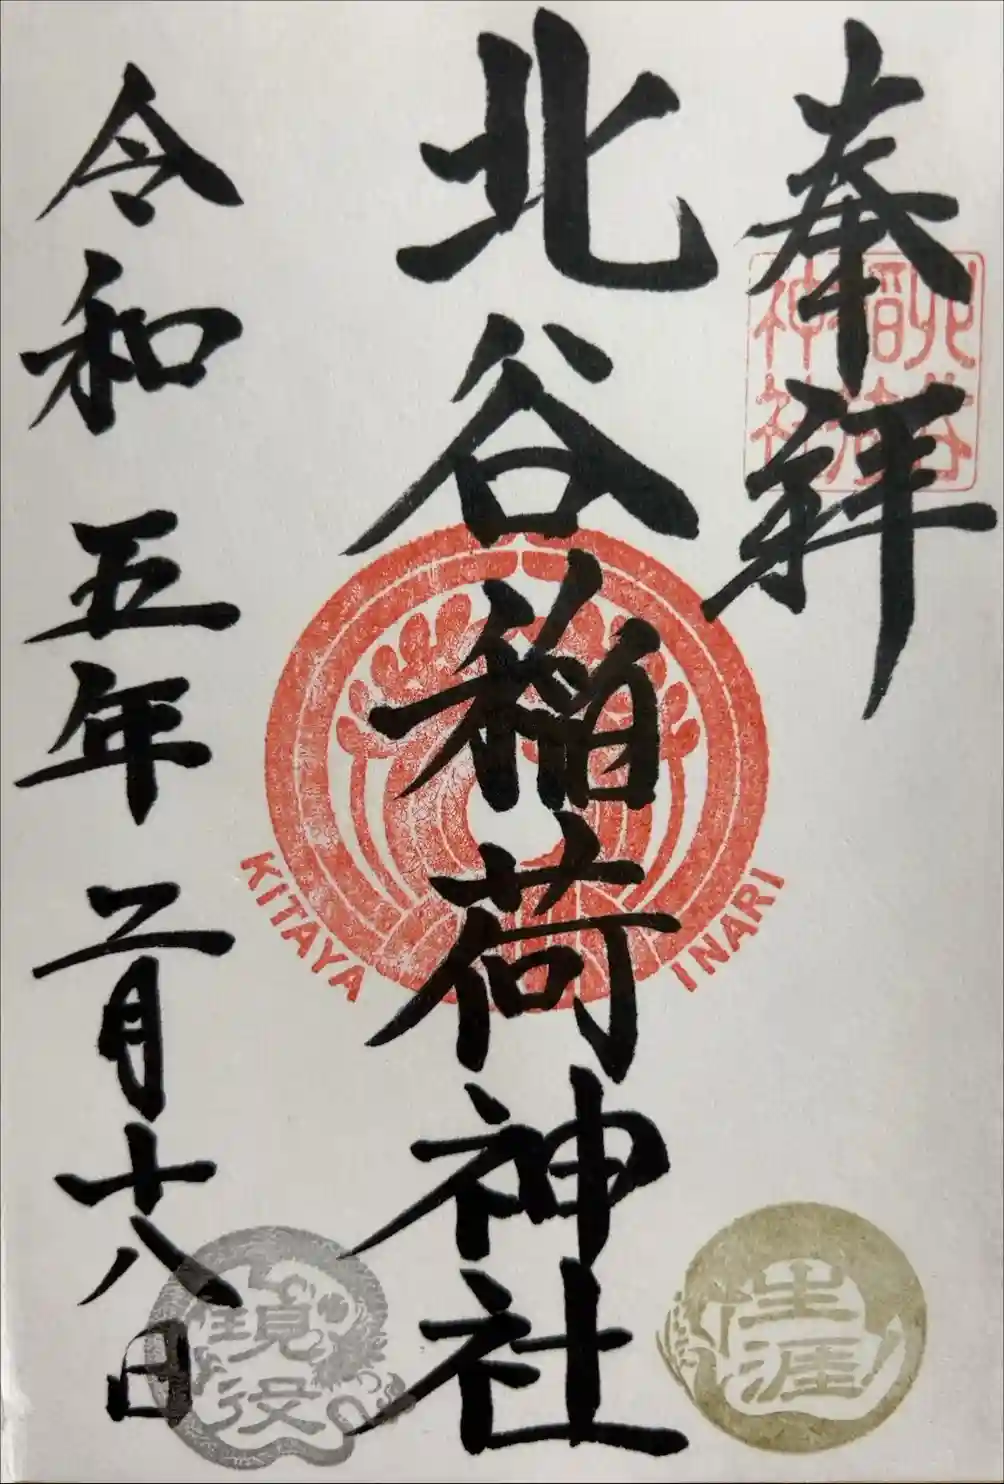 奉拝
北谷
稲荷
神社
北谷稲荷神社
KITAYA INARI
令和五年二月十八日
生涯
現役